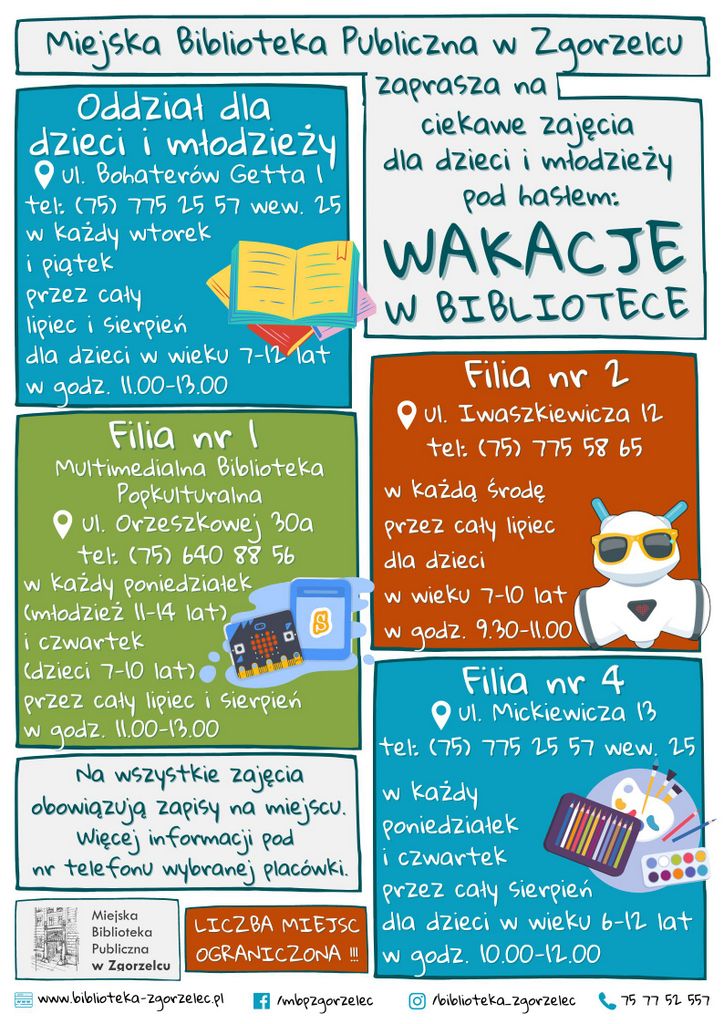 Miejska Biblioteka Publiczna w Zgorzelcu
zaprasza na
ciekawe zajęcia
dla dzieci i młodzieży
pod hasłem:
WAKACJE
W BIBLIOTECE
Oddział dla
dzieci i młodzieży
ul. Bohaterów Getta 1
tel: (75) 775 25 57 wew. 25
w każdy wtorek
i piątek
przez cały
lipiec i sierpień
dla dzieci w wieku 7-12 lat
w godz. 11.00-13.00
Filia nr 1
Multimedialna Biblioteka
Popkulturalna
ul. Orzeszkowej 30a
tel: (75) 640 88 56
w każdy poniedziałek
(młodzież 11-14 lat)
i czwartek
(dzieci 7-10 lat)
przez cały lipiec i sierpień
w godz. 11.00-13.00
S
Filia nr 2
ul. Iwaszkiewicza 12
tel: (75) 775 58 65
w każdą środę
przez cały lipiec
dla dzieci
w wieku 7-10 lat
w godz. 9.30-11.00
Filia nr 4
ul. Mickiewicza 13
tel: (75) 775 25 57 wew. 25
w każdy
poniedziałek
i czwartek
przez cały sierpień
dla dzieci w wieku 6-12 lat
w godz. 10.00-12.00
Na wszystkie zajęcia
obowiązują zapisy na miejscu.
Więcej informacji pod
nr telefonu wybranej placówki.
Miejska
Biblioteka
Publiczna
w Zgorzelcu
LICZBA MIEJSC
OGRANICZONA !!!
www.biblioteka-zgorzelec.pl
/mbpzgorzelec
/biblioteka_zgorzelec
75 77 52 557